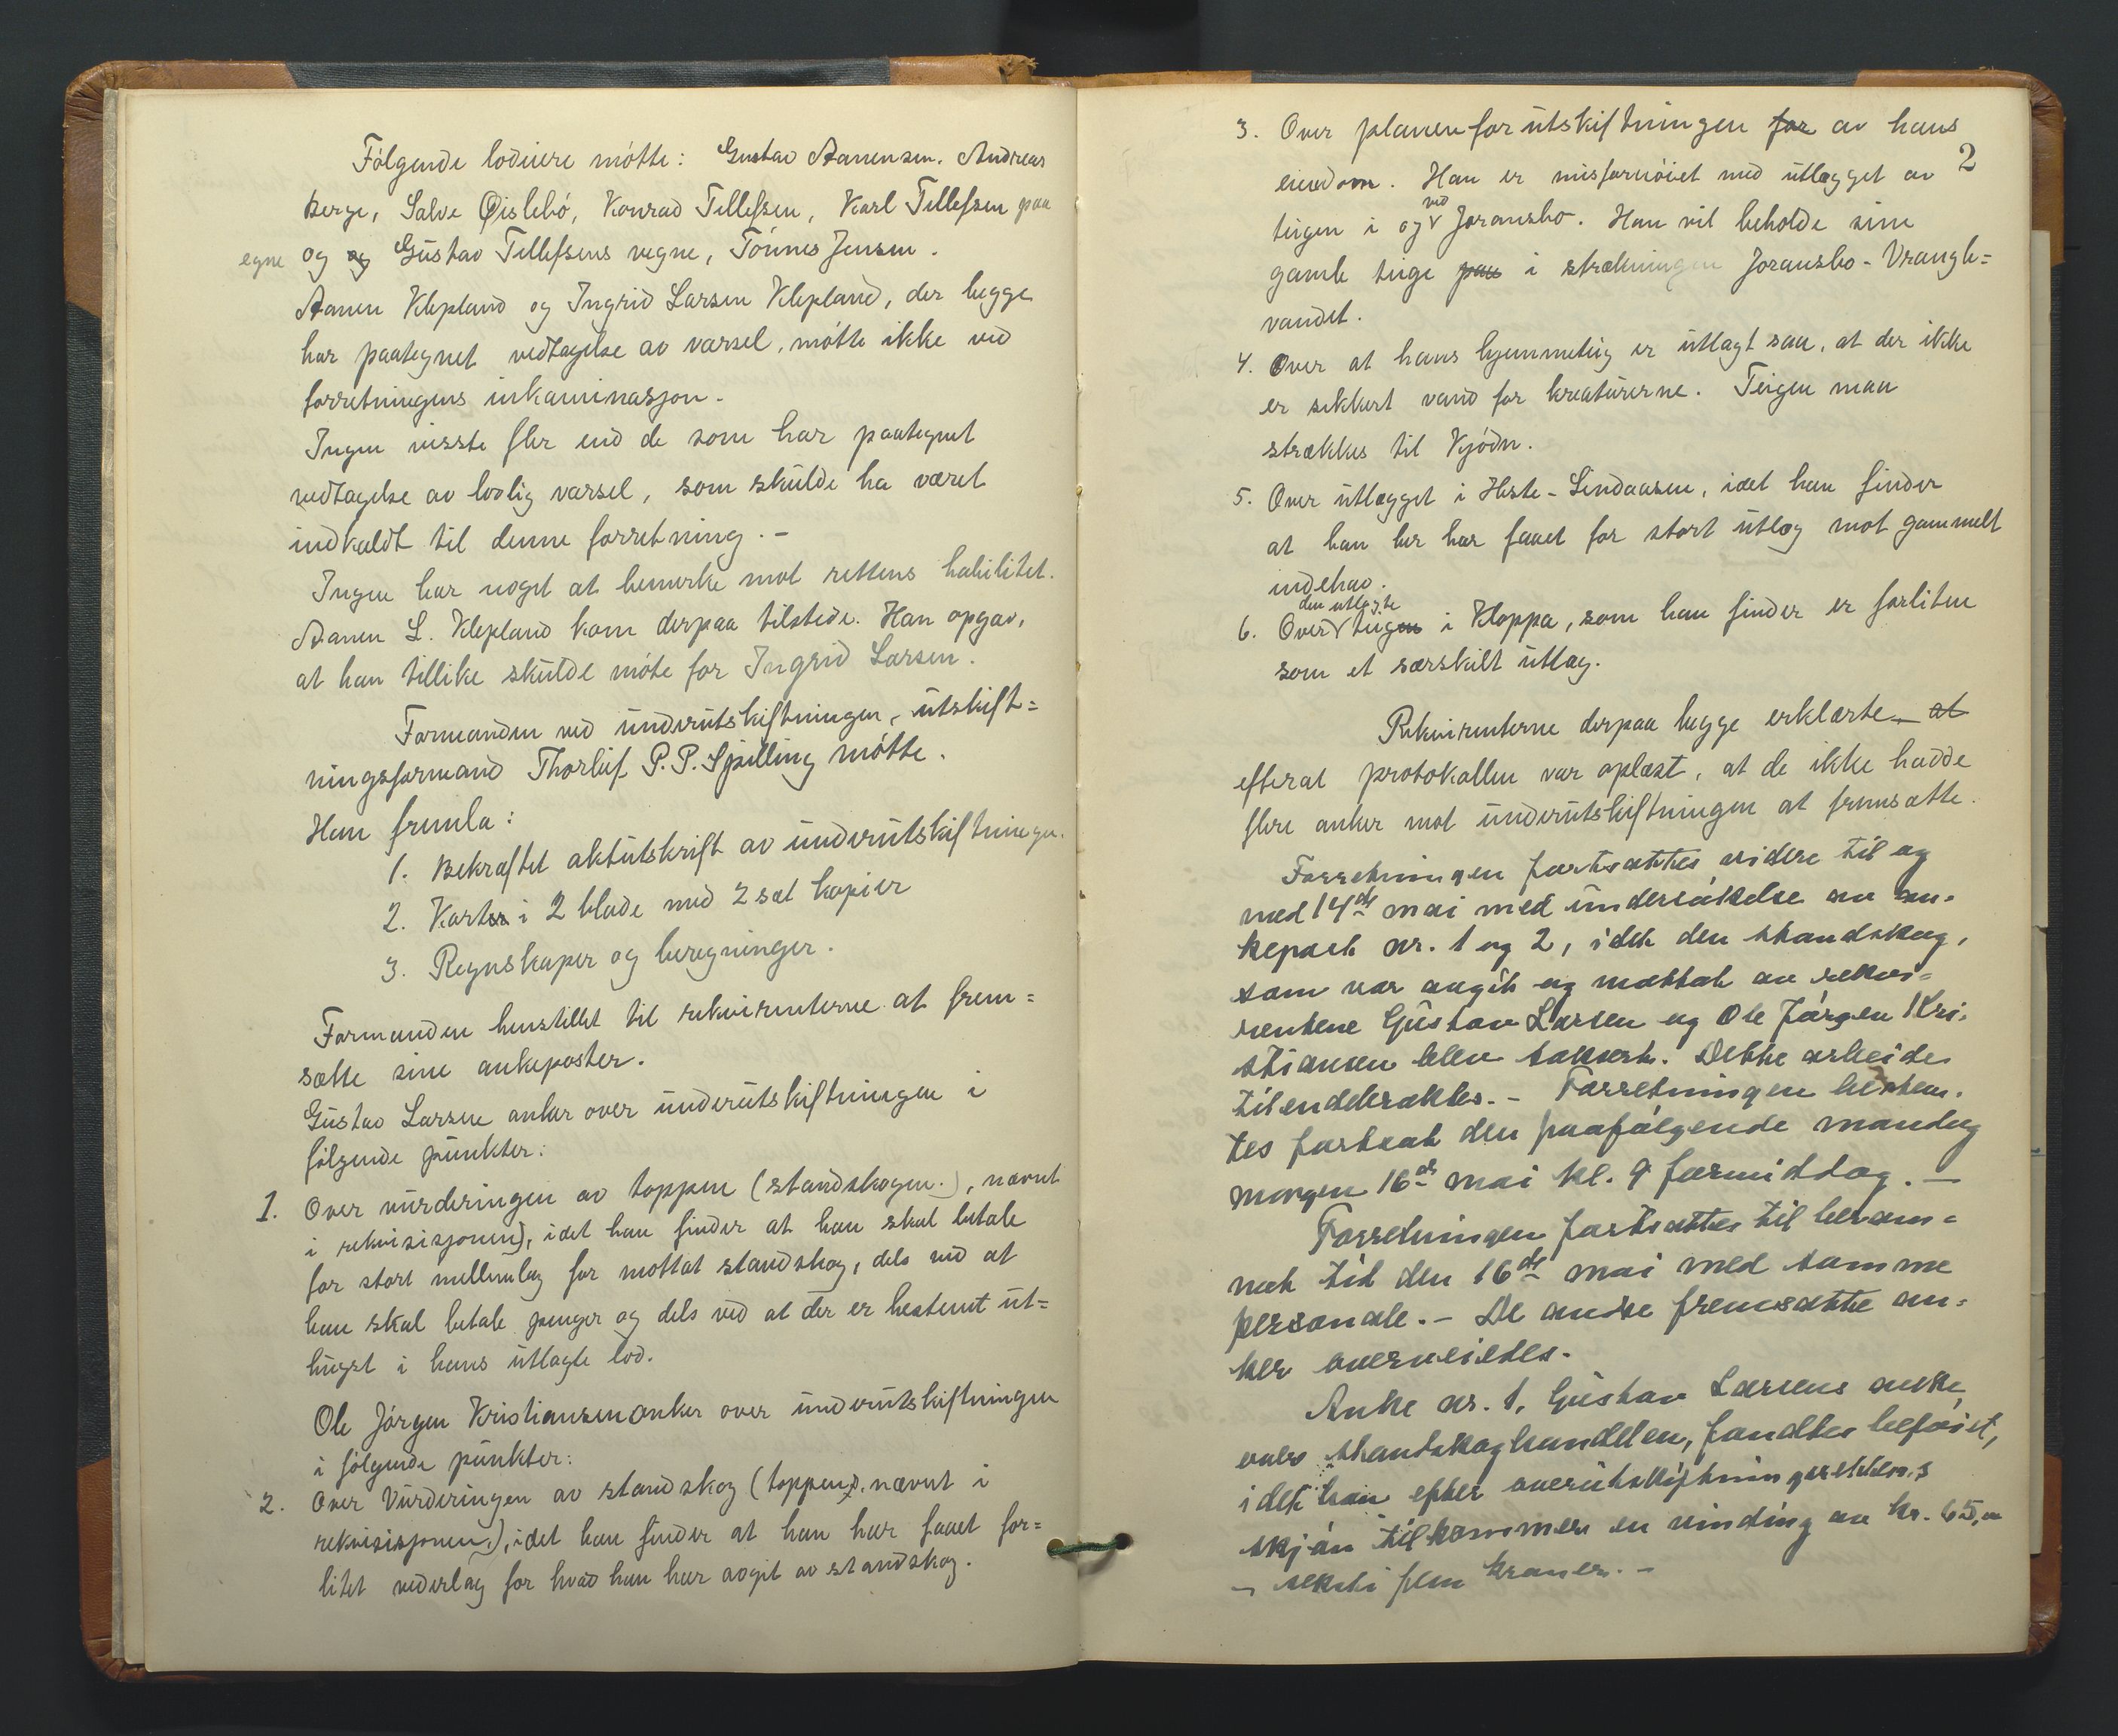 Følgende lodeiere møtte: Gustav Aanensen, Andreas
Berge, Salve Øislebø, Konrad Tellefsen, Karl Tellefsen paa
egne og og Gustav Tellefsens vegne, Tønnes Jensen.
Aanen Klepland og Ingrid Larsen Klepland, der begge
har paategnet vedtagelse av varsel, møtte ikke ved
forretningens inkaminasjon.
Ingen visste fler end de som har paategnet
vedtagelse av lovlig varsel, som skulde ha været
indkaldt til denne forretning. -
Ingen har noget at bemerke mot rettens habilitet.
Aanen L. Klepland kom derpaa tilstede. Han opgav,
at han tillike skulde møte for Ingrid Larsen.
Formanden ved underutskiftningen, utskift=
ningsformand Thorleif P. P. Spilling møtte.
Han fremla:
1. Bekræftet aktutskrift av underutskiftningen.
2. Karter i 2 blade med 2 sæt kopier
3. Regnskaper og beregninger.
Formanden henstillet til rekvirenterne at frem=
sætte sine ankeposter.
Gustav Larsen anker over underutskiftningen i
følgende punkter:
1. Over vurderingen av toppen (standskogen.), nævnt
i rekvisisjonen), idet han finder at han skal betale
for stort mellemlag for mottat standskog, dels ved at
han skal betale penger og dels ved at der er bestemt ut=
hugst i hans utlagte lod.
Ole Jørgen Kristiansen anker over underutskiftningen
i følgende punkter:
2. Over Vurderingen av standskog (toppen), nævnt i
rekvisisjonen), idet han finder at han har faaet for=
litet vederlag for hvad han har avgit av standskog.
2
3. Over planen for utskiftningen for av hans
eiendom. Han er misfornøiet med utlægget av
ved
teigen i og v Joransbo. Han vil beholde sine
gamle teige paa i strækningen Joransbo - Vrangle=
vandet.
4. Over at hans hjemmeteig er utlagt saa, at der ikke
er sikkert vand for kreaturerne. Teigen maa
strækkes til Kjødn.
5. Over utlægget i Heste - Lindaasen, idet han finder
at han her har faaet for stort utlæg mot gammelt
indehav.
den utlagte
6. Over v teigen i Kloppa, som han finder er forliten
som et særskilt utlæg.
Rekvirenterne derpaa begge erklærte at
efterat protokollen var oplæst, at de ikke hadde
flere anker mot underutskiftningen at fremsætte.
Forretningen fortsattes videre til og
med 14de mai med undersøkelse av an-
kepost nr. 1 og 2, idet den standskog,
som var avgit og mottat av rekvi=
rentene Gustav Larsen og Ole Jørgen Kri-
stiansen blev takseret. Dette arbeide
tilendebraktes. - Forretningen bestem-
tes fortsat den paafølgende mandag
morgen 16de mai kl. 9 formiddag. -
Forretningen fortsattes til beram=
met tid den 16de mai med samme
personale. - De andre fremsatte an=
ker overveiedes.
Anke nr. 1, Gustav Larsens anke
over standskoghandelen, fandtes beføiet,
idet han efter overutskiftningsrettens
skjøn tilkommer en vinding av kr. 65,00
- seksti fem kroner. -